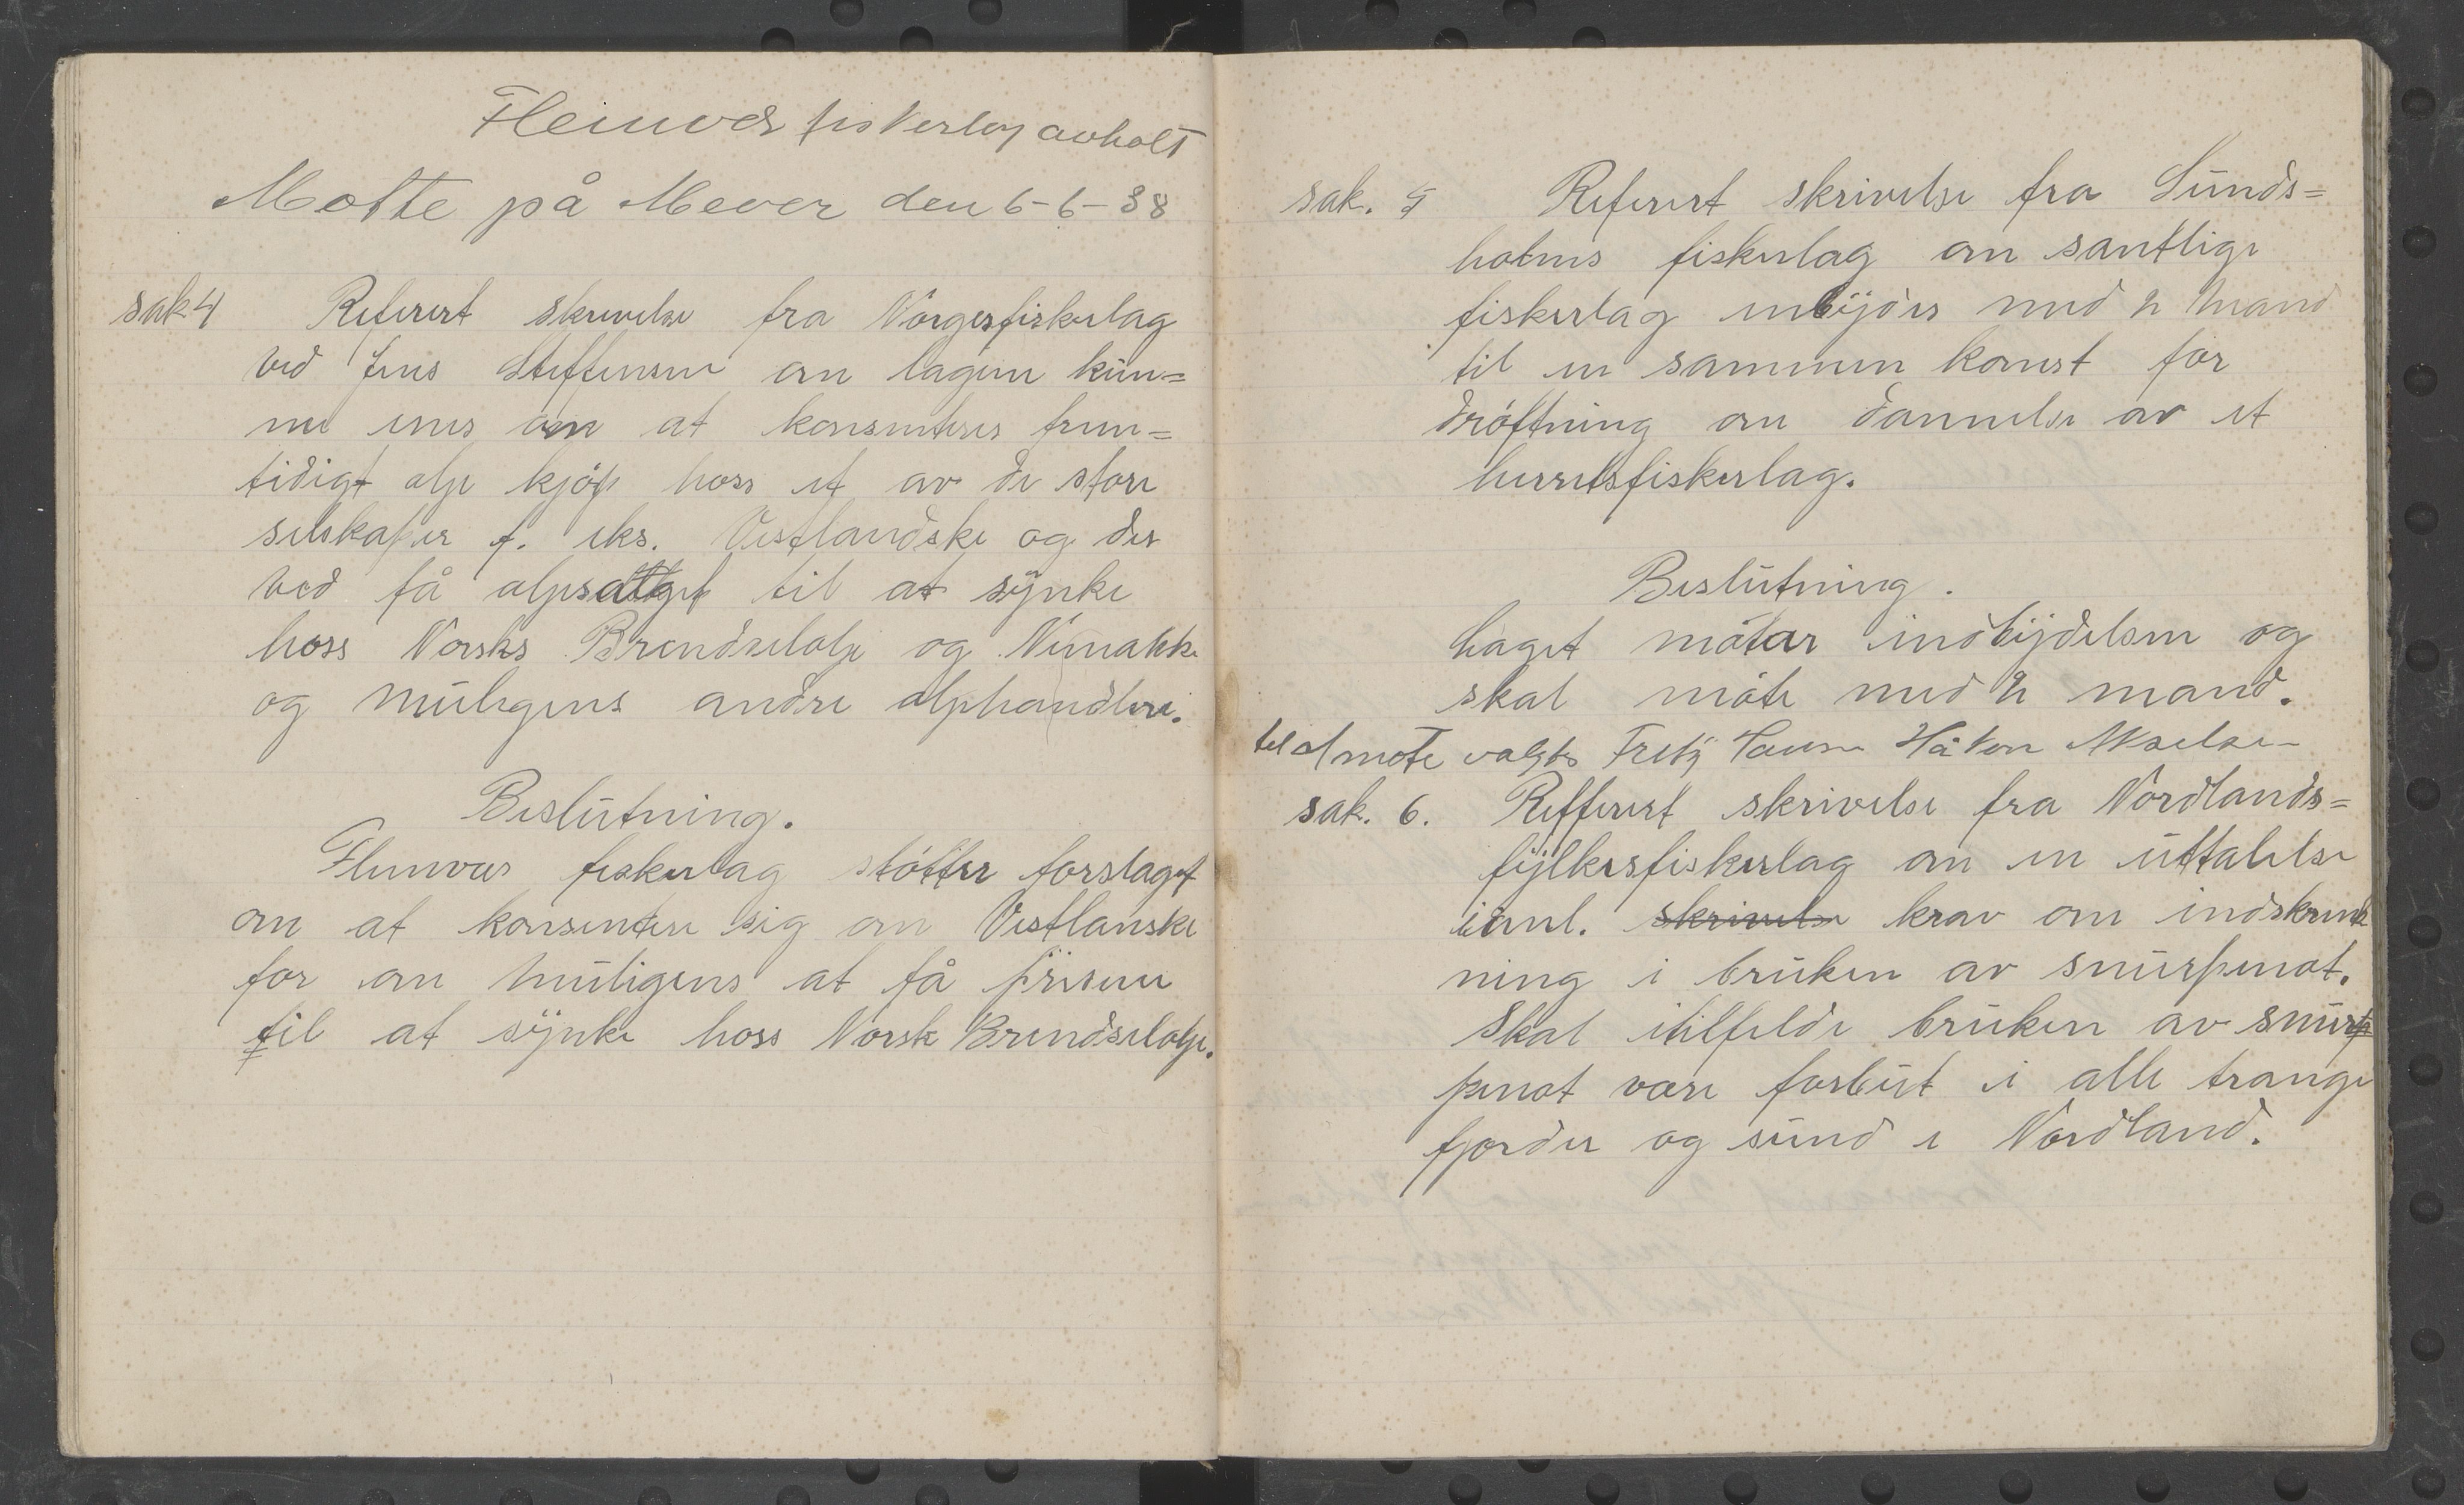 Fleinver fiskerlag avholt
Møtte på Mever den 6-6-38
sak 4 Referert skrivelse fra Norgesfiskerlag
ved Jens Steffensen om lagene kun=
ne enes om at konsenteres frem=
tidigt olje kjøp hoss et av de store
selskaper f. eks. Vestlandske og der
ved få oljesalget til at synke
hoss Norsks Brendselolje og
og muligens andre oljehandlere.
Beslutning.
Fleinvær fiskerlag støtter forslaget
om at konsentere sig om Vestlanske
for om muligens at få prisene
til at synke hoss Norsk Brendselolje.
sak. 5 Referert skrivelse fra Sunds=
holms fiskerlag om samtlige
fiskerlag inbyders med 2 mand
til en sammen komst for
drøftning om dannelse av et
herretsfiskerlag.
Beslutning.
Laget møter indbydelsen og
skal møte med 2 mand.
til At møte valgtes Håkon Akselsen
sak. 6. Refferert skrivelse fra Nordlands=
fylkesfiskerlag om en uttalelse
ianl. skrivelse krav om indskrenk
ning i bruken av snurpenot.
Skal itilfelde bruken av snurp
penot være forbut i alle trange
fjorder og sund i Nordland.